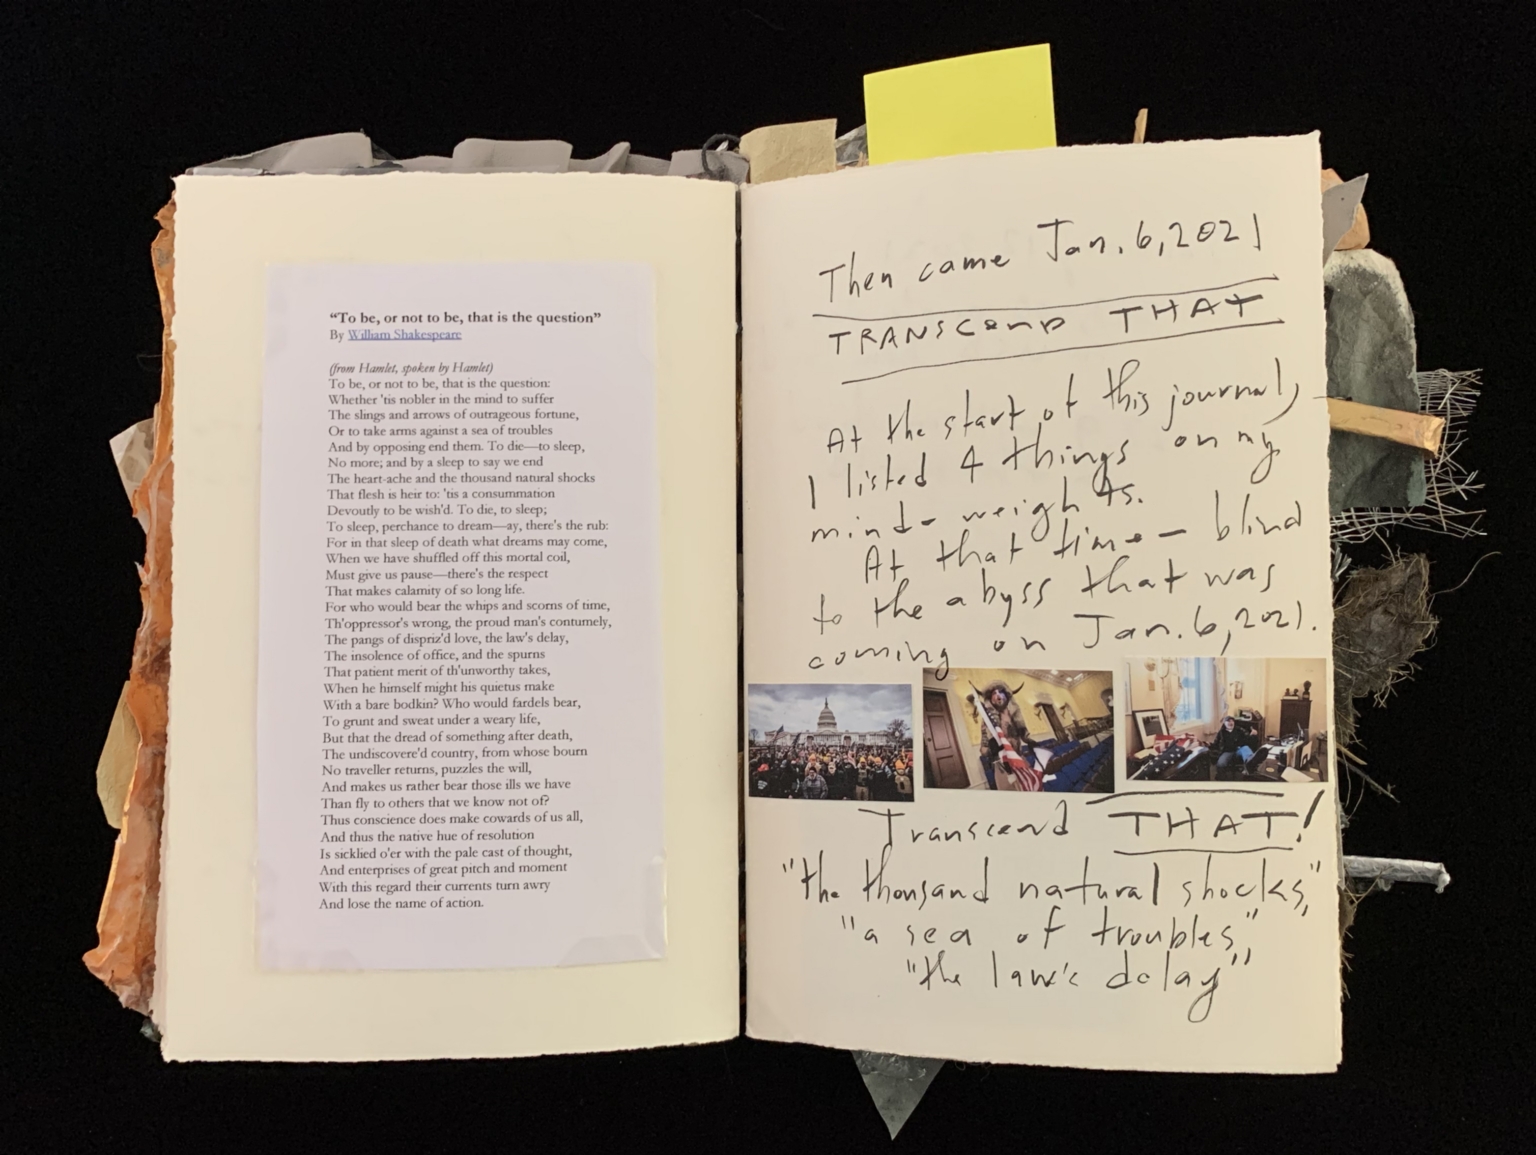 “To be, or not to be, that is the question”
By William Shakespeare
(from Hamlet, spoken by Hamlet)
To be, or not to be, that is the question:
Whether 'tis nobler in the mind to suffer
The slings and arrows of outrageous fortune,
Or to take arms against a sea of troubles
And by opposing end them. To die—to sleep,
No more; and by a sleep to say we end
The heart-ache and the thousand natural shocks
That flesh is heir to: 'tis a consummation
Devoutly to be wish'd. To die, to sleep;
To sleep, perchance to dream—ay, there's the rub:
For in that sleep of death what dreams may come,
When we have shuffled off this mortal coil,
Must give us pause—there's the respect
That makes calamity of so long life.
For who would bear the whips and scorns of time,
Th'oppressor's wrong, the proud man's contumely,
The pangs of dispriz'd love, the law's delay,
The insolence of office, and the spurns
That patient merit of th'unworthy takes,
When he himself might his quietus make
With a bare bodkin? Who would fardels bear,
To grunt and sweat under a weary life,
But that the dread of something after death,
The undiscovere'd country, from whose bourn
No traveller returns, puzzles the will,
And makes us rather bear those ills we have
Than fly to others that we know not of?
Thus conscience does make cowards of us all,
And thus the native hue of resolution
Is sicklied o'er with the pale cast of thought,
And enterprises of great pitch and moment
With this regard their currents turn awry
And lose the name of action.
Then came Jan. 6, 2021
TRANSCEND THAT
At the start of this journal,
I listed 4 things on my
mind - weights.
At that time - blind
to the abyss that was
coming on Jan. 6, 2021.
Transcend THAT!
"the thousand natural shocks,"
"a sea of troubles,"
"the law's delay"